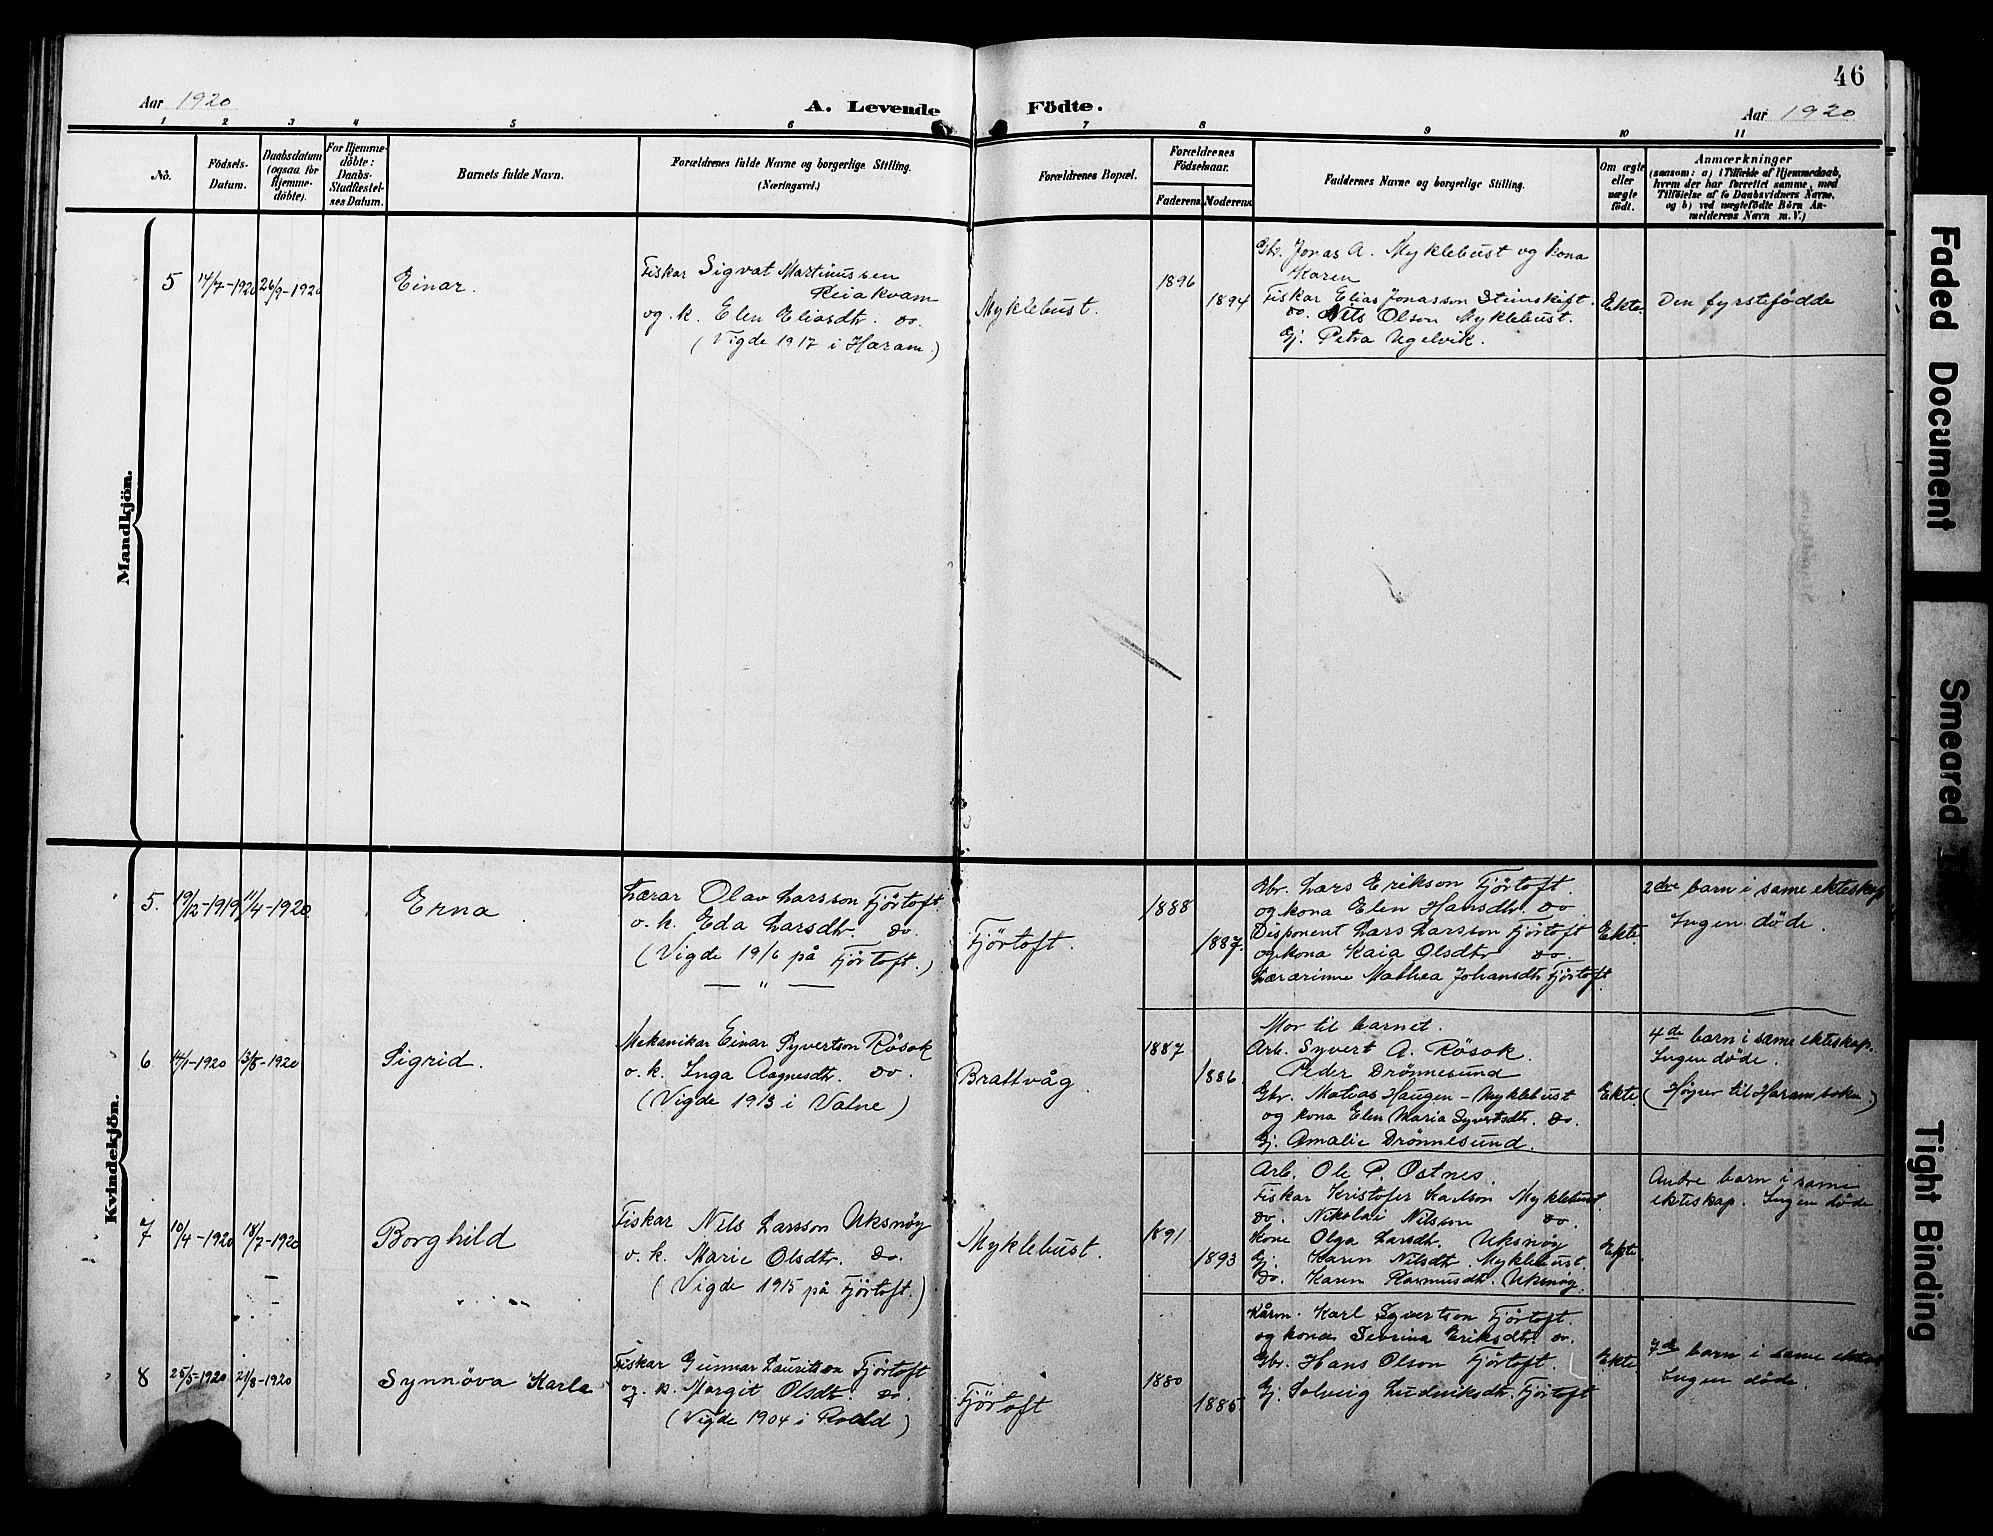 46
Aar 1920
A. Levende Födte.
Aar 1920
1 2 3 4 5 6 7 8 9 10 11
No.
Födsels-
Datum.
Daabsdatum
(ogsaa for
Hjemme-
döbte).
For Hjemme-
döbte:
Daabs-
Stadfæstel-
ses Datum.
Barnets fulde Navn.
Forældrenes fulde Navne og borgerlige Stilling.
(Næringsvei.)
Forældrenes Bopæl.
Forældrenes
Födselsaar.
Faderens. Moderens.
Faddernes Navne og borgerlige Stilling.
Om ægte
eller
uægte
födt.
Anmærkninger
(saasom: a) i Tilfælde af Hjemmedaab,
hvem der har forrettet samme, med
Tilföielse af to Daabsvidners Navne,
og b) ved uægtefödte Börn An-
melderens Navn m. V.)
Mandkjön.
5 14/7-1920 26/9-1920
Einar.
Fiskar Sigvat Martinussen
Reiakvam
og k. Elen Eliasdtr. do.
(Vigde 1917 i Haram.)
Myklebust.
1896
1894
Gbr. Jonas A. Myklebust og kona
Karen
Fiskar Elias Jonasson Steinskift.
do. Nils Olson Myklebust.
Gj. Petra Ugelvik.
Ekte.
Den fyrstefödde
Kvindekjön.
5. 19/12-1919 11/4-1920
Erna.
Lærar Olav Larsson Fjörtoft
o. k. Eda Larsdtr. do.
(Vigde 1916 på Fjörtoft.)
— " —
Fjörtoft.
1888
1887.
Gbr. Lars Erikson Fjörtoft.
og kona Elen Hansdtr. do
Disponent Lars Larsson Fjörtoft
og kona Kaia Olsdtr do.
Lærarinne Mathea Johansdtr Fjörtoft.
Ekte.
2dre barn i same ekteskap
Ingen døde.
6 14/1-1920 13/5-1920
Sigrid.
Mekanikar Einar Syvertson Røsok
o. k. Inga Aagnesdtr. do.
(Vigde 1913 i Vatne)
Brattvåg
1887
1886.
Mor til barnet.
Arb. Syvert A. Røsok.
Peder Drönnesund
Gbr. Matias Haugen-Myklebust
og kona Elen Maria Syvertsdtr. do.
Gj. Amalie Drönnesund.
Ekte.
4de barn i same ekteskap.
Ingen døde.
(Høyer til Haramsboka.)
7 10/4-1920 18/7-1920
Borghild
Fiskar Nils Larsson Uksnøy
o. k. Marie Olsdtr. do.
(Vigde 1915 på Fjörtoft.)
Myklebust.
1891
1893
Arb. Ole P. Ostnes.
Fiskar Kristofer Karlson Myklebust.
do. Nikolai Nilsen do.
Kone Olga Larsdtr. Uksnøy
Gj. Karen Nilsdtr. Myklebust.
do. Karen Rasmusdtr. Uksnøy
Ekte.
Andre barn i same
ekteskap. Ingen døde
8 25/5-1920 21/8-1920
Synnöva Karla
Fiskar Gunnar Lauritson Fjörtoft
og k. Margit Olsdtr. do.
(Vigde 1904 i Roald)
Fjörtoft
1880
1885.
Kårm. Karl Syvertson Fjörtoft.
og kona Sevrina Eriksdtr. do.
Gbr. Hans Olson Fjörtoft.
Gj. Solveig Ludviksdtr. Fjörtoft
Ekte
7de barn i same
Ingen døde.
Faded Document
Smeared
Tight Binding